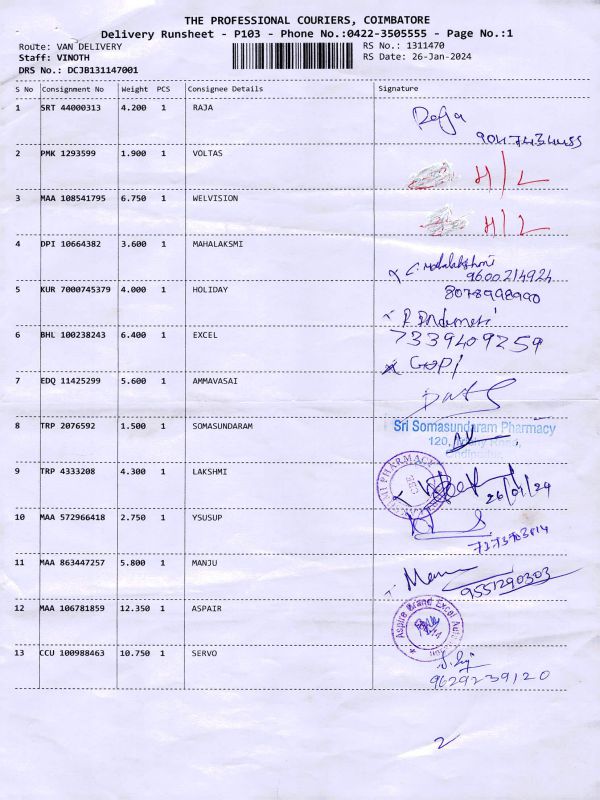 THE PROFESSIONAL COURIERS, COIMBATORE
Delivery Runsheet - P103 - Phone No.:0422-3505555 - Page No.:1
Route: VAN DELIVERY RS No.: 1311470
Staff: VINOTH RS Date: 26-Jan-2024
DRS No.: DCJB131147001
S No Consignment No Weight PCS Consignee Details Signature
1 SRT 44000313 4.200 1 RAJA Raja
2 PMK 1293599 1.900 1 VOLTAS H/L
3 MAA 108541795 6.750 1 WELVISION H/L
4 DPI 10664382 3.600 1 MAHALAKSMI
9600214924
5 KUR 7000745379 4.000 1 HOLIDAY 8078998990
6 BHL 100238243 6.400 1 EXCEL 7339409259
GOPI
7 EDQ 11425299 5.600 1 AMMAVASAI
8 TRP 2076592 1.500 1 SOMASUNDARAM Sri Somasundaram Pharmacy
120,
9 TRP 4333208 4.300 1 LAKSHMI 26/01/24
PHARMACY
10 MAA 572966418 2.750 1 YSUSUP
11 MAA 863447257 5.800 1 MANJU
9551290303
12 MAA 106781859 12.350 1 ASPAIR Aspire Brand Excel
13 CCU 100988463 10.750 1 SERVO
9629239120
2